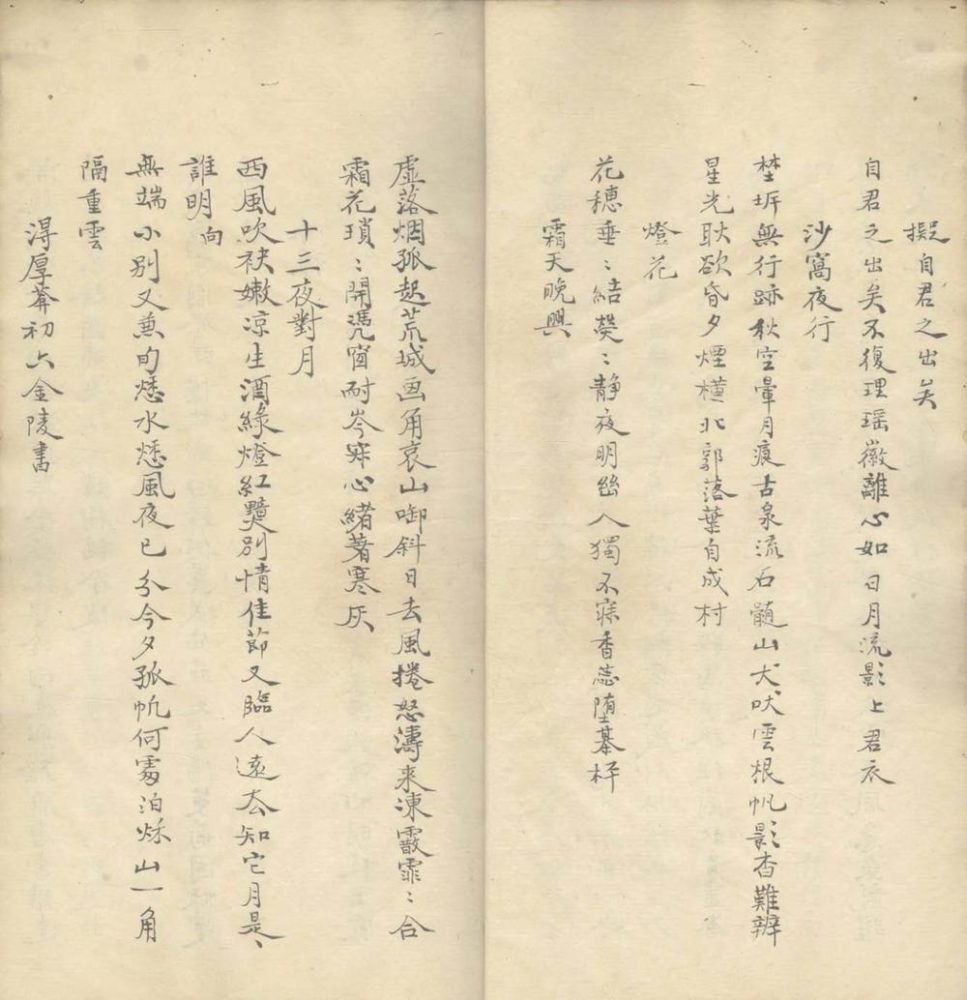 擬自君之出矣
自君之出矣不復理瑶徽離心如日月流影上君衣
沙窩夜行
埜坼無行跡秋空暈月痕古泉流石髓山犬吠雲根帆影杳難辨
星光耿欲昏夕煙橫北郭落葉自成村
燈花
花穗垂〻結𤼵〻靜夜明幽人獨不寐香蕊墮棊枰
霜天晚興
虛落烟孤起荒城画角哀山啣斜日去風捲怒濤來凍霰霏〻合
霜花瑣〻開凴窗耐岑寂心緒著寒灰
十三夜對月
西風吹袂嫩凉生酒綠燈紅別情佳節又臨人遠去知它月是、
誰明向
無端小別又兼旬愁水愁風夜已分今夕孤帆何處泊秋山一角
隔重雲
淂厚菴初六金陵書